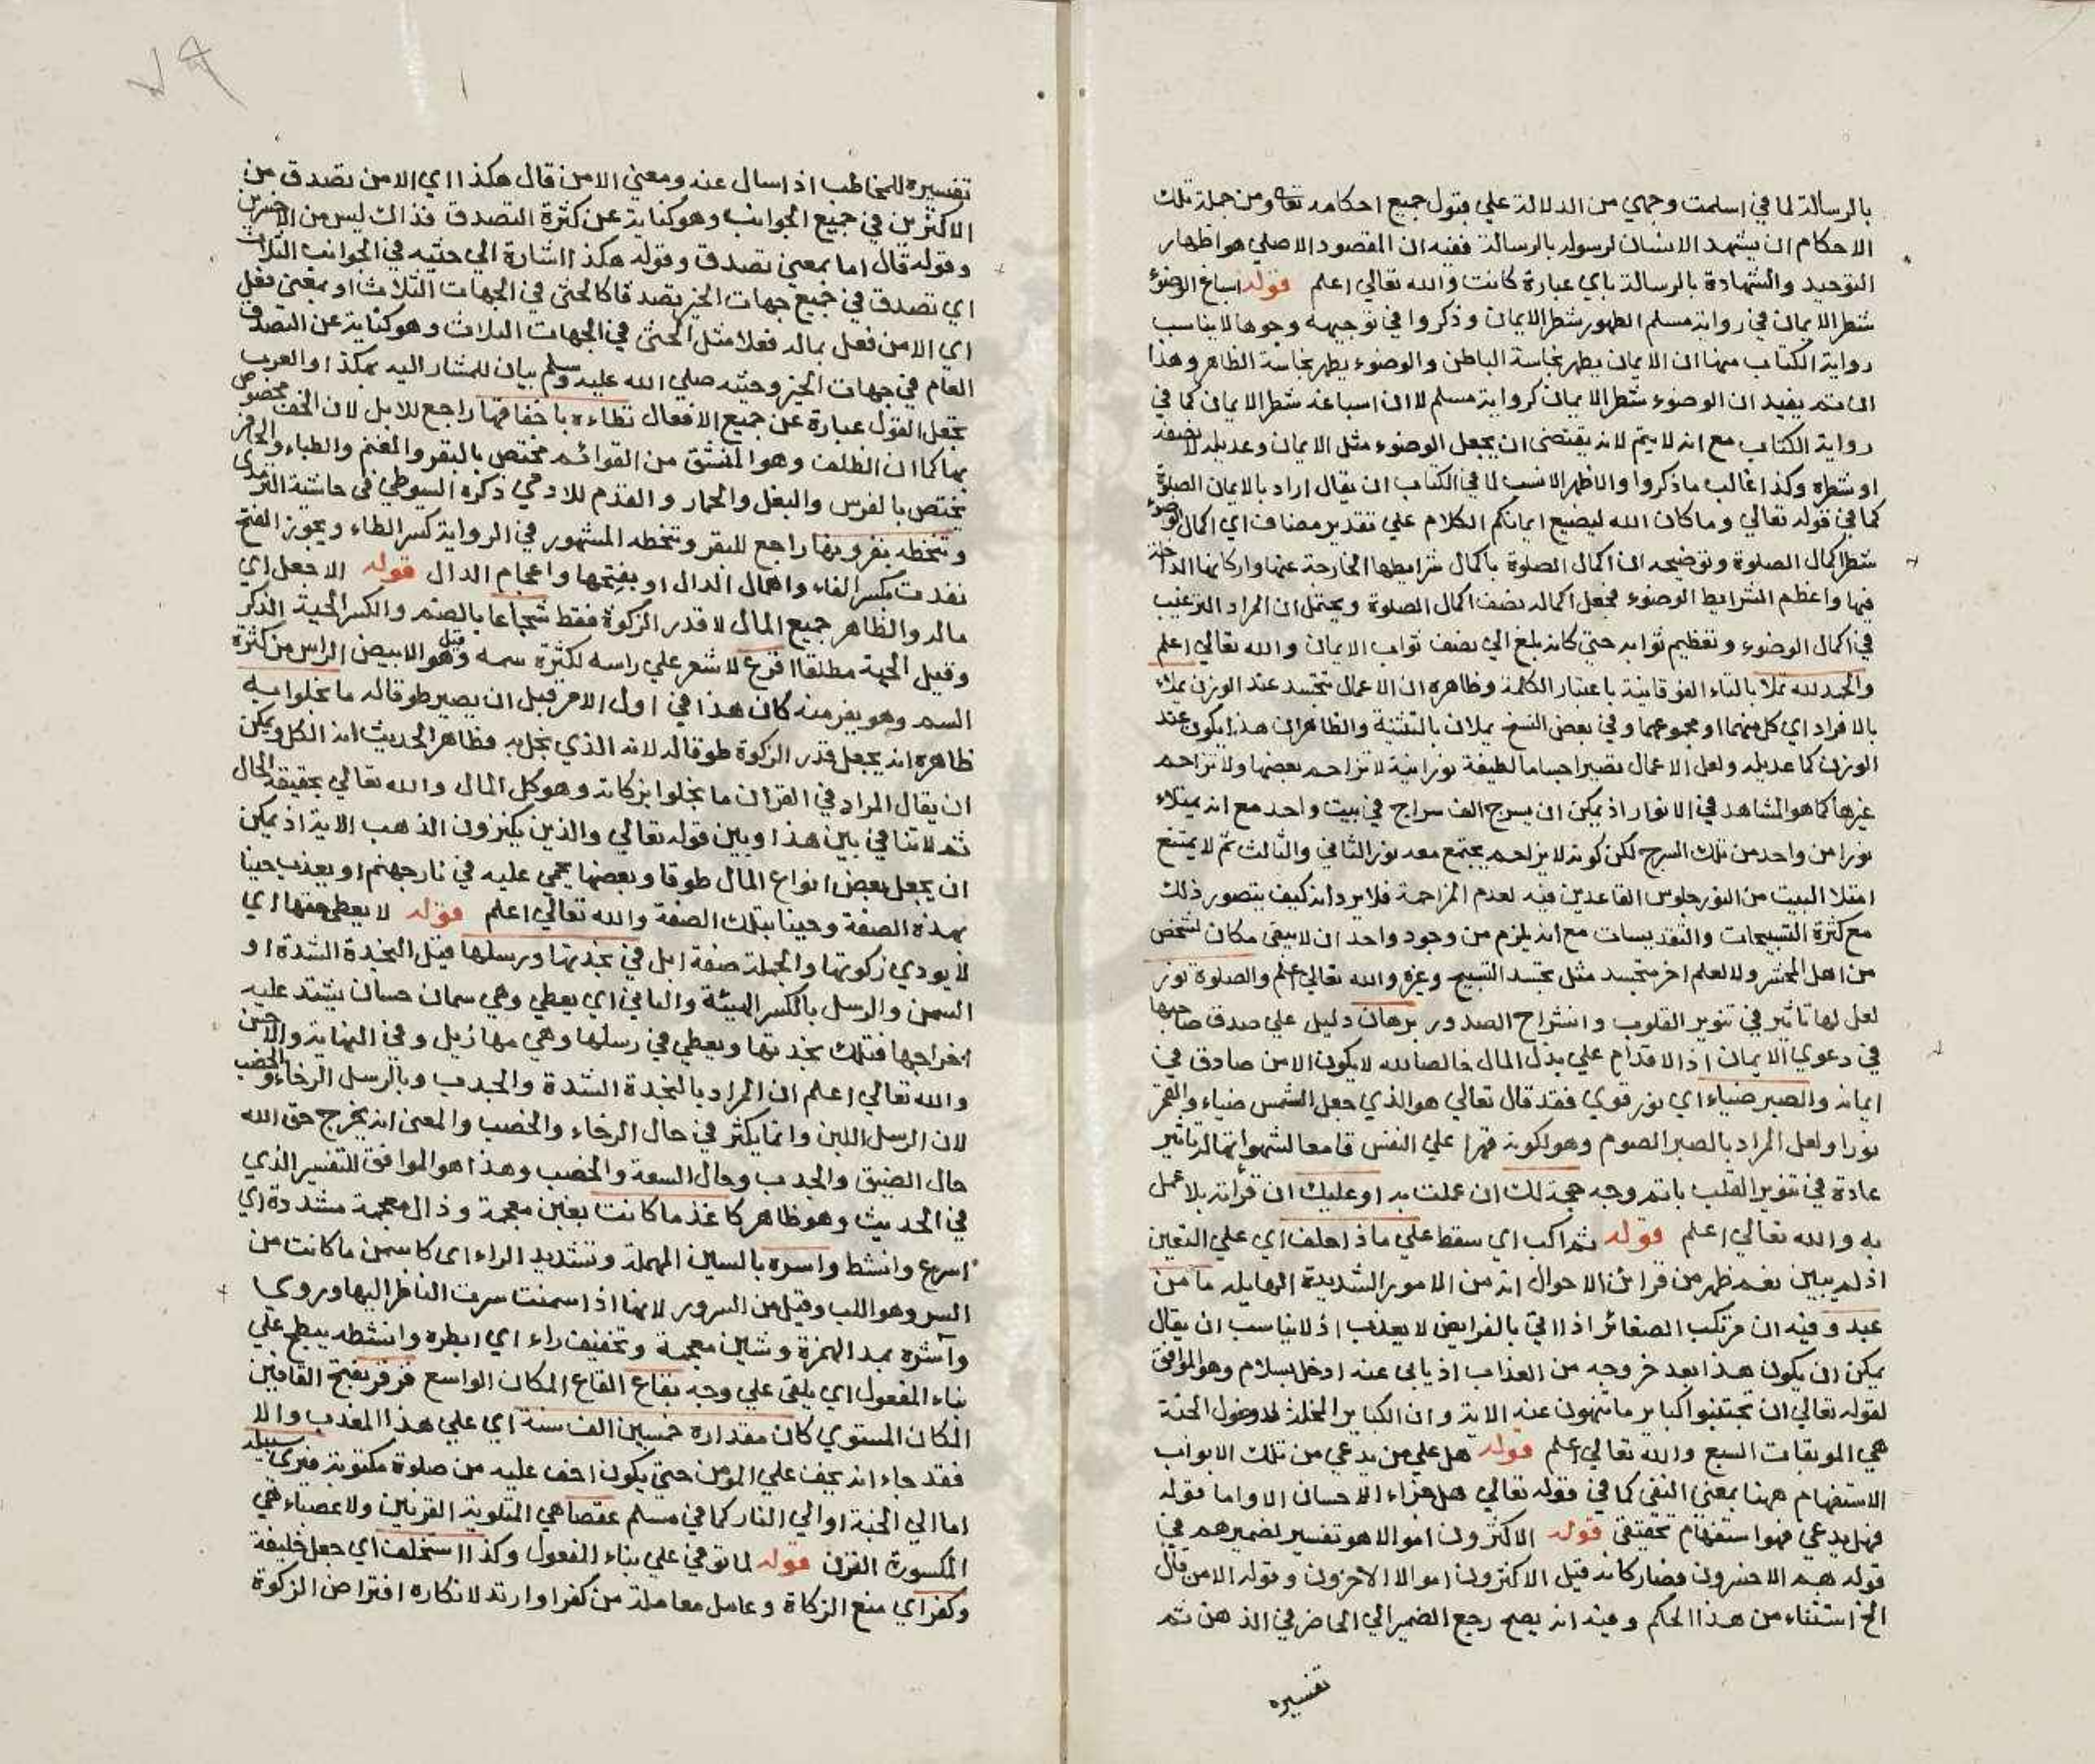 بالرسالة لما في اسلمت وجهي من الدلالة علي قبول جميع احكامه تعا ومن جملة تلك
الاحكام ان يشهد الانسان لرسوله بالرسالة ففيه ان المقصود الاصلي هو اظهار
التوحيد والشهادة بالرسالة باي عبارة كانت والله تعالي اعلم قوله اسباغ الوضوء
شطر الايمان في رواية مسلم الطهور شطر الايمان وذكروا في توجيهه وجوها لا يناسب
رواية الكتاب منها ان الايمان يطهر نجاسة الباطن والوضوء يطهر نجاسة الظاهر وهذا
ان تم يفيد ان الوضوء شطر الايمان كرواية مسلم لا ان اسباغه شطر الايمان كما في
رواية الكتاب مع انه لا يتم لانه يقتضي ان يجعل الوضوء مثل الايمان وعديله لا نصفه
او شطره وكذا غالب ما ذكروا والاظهر الانسب لما في الكتاب ان يقال اراد بالايمان الصلوة
كما في قوله تعالي وما كان الله ليضيع ايمانكم الكلام علي تقدير مضاف اي اكمال الوضوء
شطر اكمال الصلوة وتوضيحه ان اكمال الصلوة باكمال شرايطها الخارجة عنها واركانها الداخلة
فيها واعظم الشرايط الوضوء فجعل اكماله نصف اكمال الصلوة ويحتمل ان المراد الترغيب
في اكمال الوضوء وتعظيم ثوابه حتي كانه بلغ الي نصف ثواب الايمان والله تعالي اعلم
والحمد لله تملا بالتاء الفوقانية باعتبار الكلمة وظاهره ان الاعمال تتجسد عند الوزن يملاء
بالافراد اي كل منهما او مجموعهما وفي بعض النسخ يملان بالتثنية والظاهر ان هذا يكون عند
الوزن كما عديله ولعل الاعمال تصير اجساما لطيفة نورانية لا تزاحم بعضها ولا تزاحم
غيرها كما هو المشاهد في الانوار اذ يمكن ان يسرج الف سراج في بيت واحد مع انه يمتلاء
نورا من واحد من تلك السرج لكن كونه لا يزاحم يجتمع معه نور الثاني والثالث ثم لا يمتنع
امتلا البيت من النور جلوس القاعدين فيه لعدم المزاحمة فلا يرد انه كيف يتصور ذلك
مع كثرة التسبيحات والتقديسات مع انه يلزم من وجود واحد ان لا يبقي مكان لشخص
من اهل المحشر ولا لعلم اخر متجسد مثل تجسد التسبيح وغيره والله تعالي اعلم والصلوة نور
لعل لها تاثير في تنوير القلوب وانشراح الصدور برهان دليل علي صدق صاحبها
في دعوي الايمان اذ الاقدام علي بذل المال خالصا لله لا يكون الا من صادق في
ايمانه والصبر ضياء اي نور قوي فقد قال تعالي هو الذي جعل الشمس ضياء والقمر
نورا ولعل المراد بالصبر الصوم وهو لكونه قهرا علي النفس قامعا لشهواتها له تاثير
عادة في تنوير القلب باتم وجه حجة لك ان عملت به او عليك ان قراته بلا عمل
به والله تعالي اعلم قوله ثم اكب اي سقط علي ماذا حلف اي علي التعين
اذ لم يبين نعم ظهر من قرائن الاحوال انه من الامور الشديدة الهايله ما من
عبد وفيه ان مرتكب الصغائر اذا اتي بالفرايض لا يعذب اذ لا يناسب ان يقال
يمكن ان يكون هذا بعد خروجه من العذاب اذ يابى عنه ادخل بسلام وهو الموافق
لقوله تعالي ان تجتنبوا كبائر ما تنهون عنه الاية وان الكباير المخلة لدخول الجنة
هي الموبقات السبع والله تعالي اعلم قوله هل علي من يدعي من تلك الابواب
الاستفهام ههنا بمعني النفي كما في قوله تعالي هل جزاء الاحسان الا واما قوله
فهل يدعي فهو استفهام تحقيقي قوله الاكثرون اموالا هو تفسير لضميرهم في
قوله هم الاخسرون فصار كانه قيل الاكثرون اموالا الاخرون وقوله الا من قال
الخ استثناء من هذا الحكم وفيه انه يصح رجع الضمير الي الحاضر في الذهن ثم
تفسيره
تفسيره للمخاطب اذا سال عنه ومعني الا من قال هكذا اي الا من تصدق من
الاكثرين في جميع الجوانب وهو كناية عن كثرة التصدق فذاك ليس من الاخسرين
وقوله قال اما بمعني تصدق وقوله هكذا اشارة الي حثيه في الجوانب الثلاث
اي تصدق في جميع جهات الخير تصدقا كالحثي في الجهات الثلاث او بمعني فعل
اي الا من فعل بماله فعلا مثل الحثي في الجهات الثلاث وهو كناية عن التصدق
العام في جهات الخير وحثيه صلي الله عليه وسلم بيان للمشار اليه بهكذا والعرب
تجعل القول عبارة عن جميع الافعال تطاءه باخفافها راجع للابل لان الخف مخصوص
بها كما ان الظلف وهو المنشق من القوائم مختص بالبقر والغنم والظباء والحافر
تختص بالفرس والبغل والحمار والقدم للادمي ذكره السيوطي في حاشية الترمذي
وتنطحه بقرونها راجع للبقر وتنطحه المشهور في الرواية كسر الطاء ويجوز الفتح
نفدت بكسر الفاء واهمال الدال او بفتحها واعجام الدال قوله الا جعل اي
ماله والظاهر جميع المال لا قدر الزكوة فقط شجاعا بالضم والكسر الحية الذكر
وقيل الحية مطلقا اقرع لا شعر علي راسه لكثرة سمه وقيل هو الابيض الراس من كثرة
السم وهو يفر منه كان هذا في اول الامر قبل ان يصير طوقا له ما بخلوا به
ظاهره انه يجعل قدر الزكوة طوقا له لانه الذي بخل به وظاهر الحديث انه الكل ويمكن
ان يقال المراد في القران ما بخلوا بزكاته وهو كل المال والله تعالي بحقيقة الحال
ثم لا تنافي بين هذا وبين قوله تعالي والذين يكنزون الذهب الاية اذ يمكن
ان يجعل بعض انواع المال طوقا وبعضها يحمي عليه في نار جهنم او يعذب حينا
بهذه الصفة وحينا بتلك الصفة والله تعالي اعلم قوله لا يعطي حقها اي
لا يودي زكوتها والجملة صفة ابل في نجدتها ورسلها قيل النجدة الشدة او
السمن والرسل بالكسر الهيئة والتاني اي يعطي وهي سمان حسان يشتد عليه
اخراجها فتلك نجدتها ويعطي في رسلها وهي مهازيل وفي النهاية والاحسن
والله تعالي اعلم ان المراد بالنجدة الشدة والجدب وبالرسل الرخاء والخصب
لان الرسل اللبن وانما يكثر في حال الرخاء والخصب والمعنى انه يخرج حق الله
حال الضيق والجدب وحال السعة والخصب وهذا هو الموافق للتفسير الذي
في الحديث وهو ظاهر كاغذ ما كانت بغين معجمة وذال معجمة مشددة اي
اسرع وانشط واسره بالسين المهملة وتشديد الراء اى كاسمن ما كانت من
السر وهو اللب وقيل من السرور لانها اذا سمنت سرت الناظر اليها وروي
وآشره بمد الهمزة وشين معجمة وتخفيف راء اي ابطره وانشطه يبطح علي
بناء المفعول اي يلقي علي وجهه بقاع القاع المكان الواسع قرقر بفتح القافين
المكان المستوي كان مقداره خمسين الف سنة اي علي هذا المعذب والا
فقد جاء انه يخف علي المومن حتي يكون اخف عليه من صلوة مكتوبة فيري سبيله
اما الي الجنة او الي النار كما في مسلم عقصا هي الملتوية القرنين ولا عضباء هي
المكسورة القرن قوله لما توفي علي بناء المفعول وكذا استخلف اي جعل خليفة
وكفر اي منع الزكاة وعامل معاملة من كفر او ارتد لانكاره افتراض الزكوة